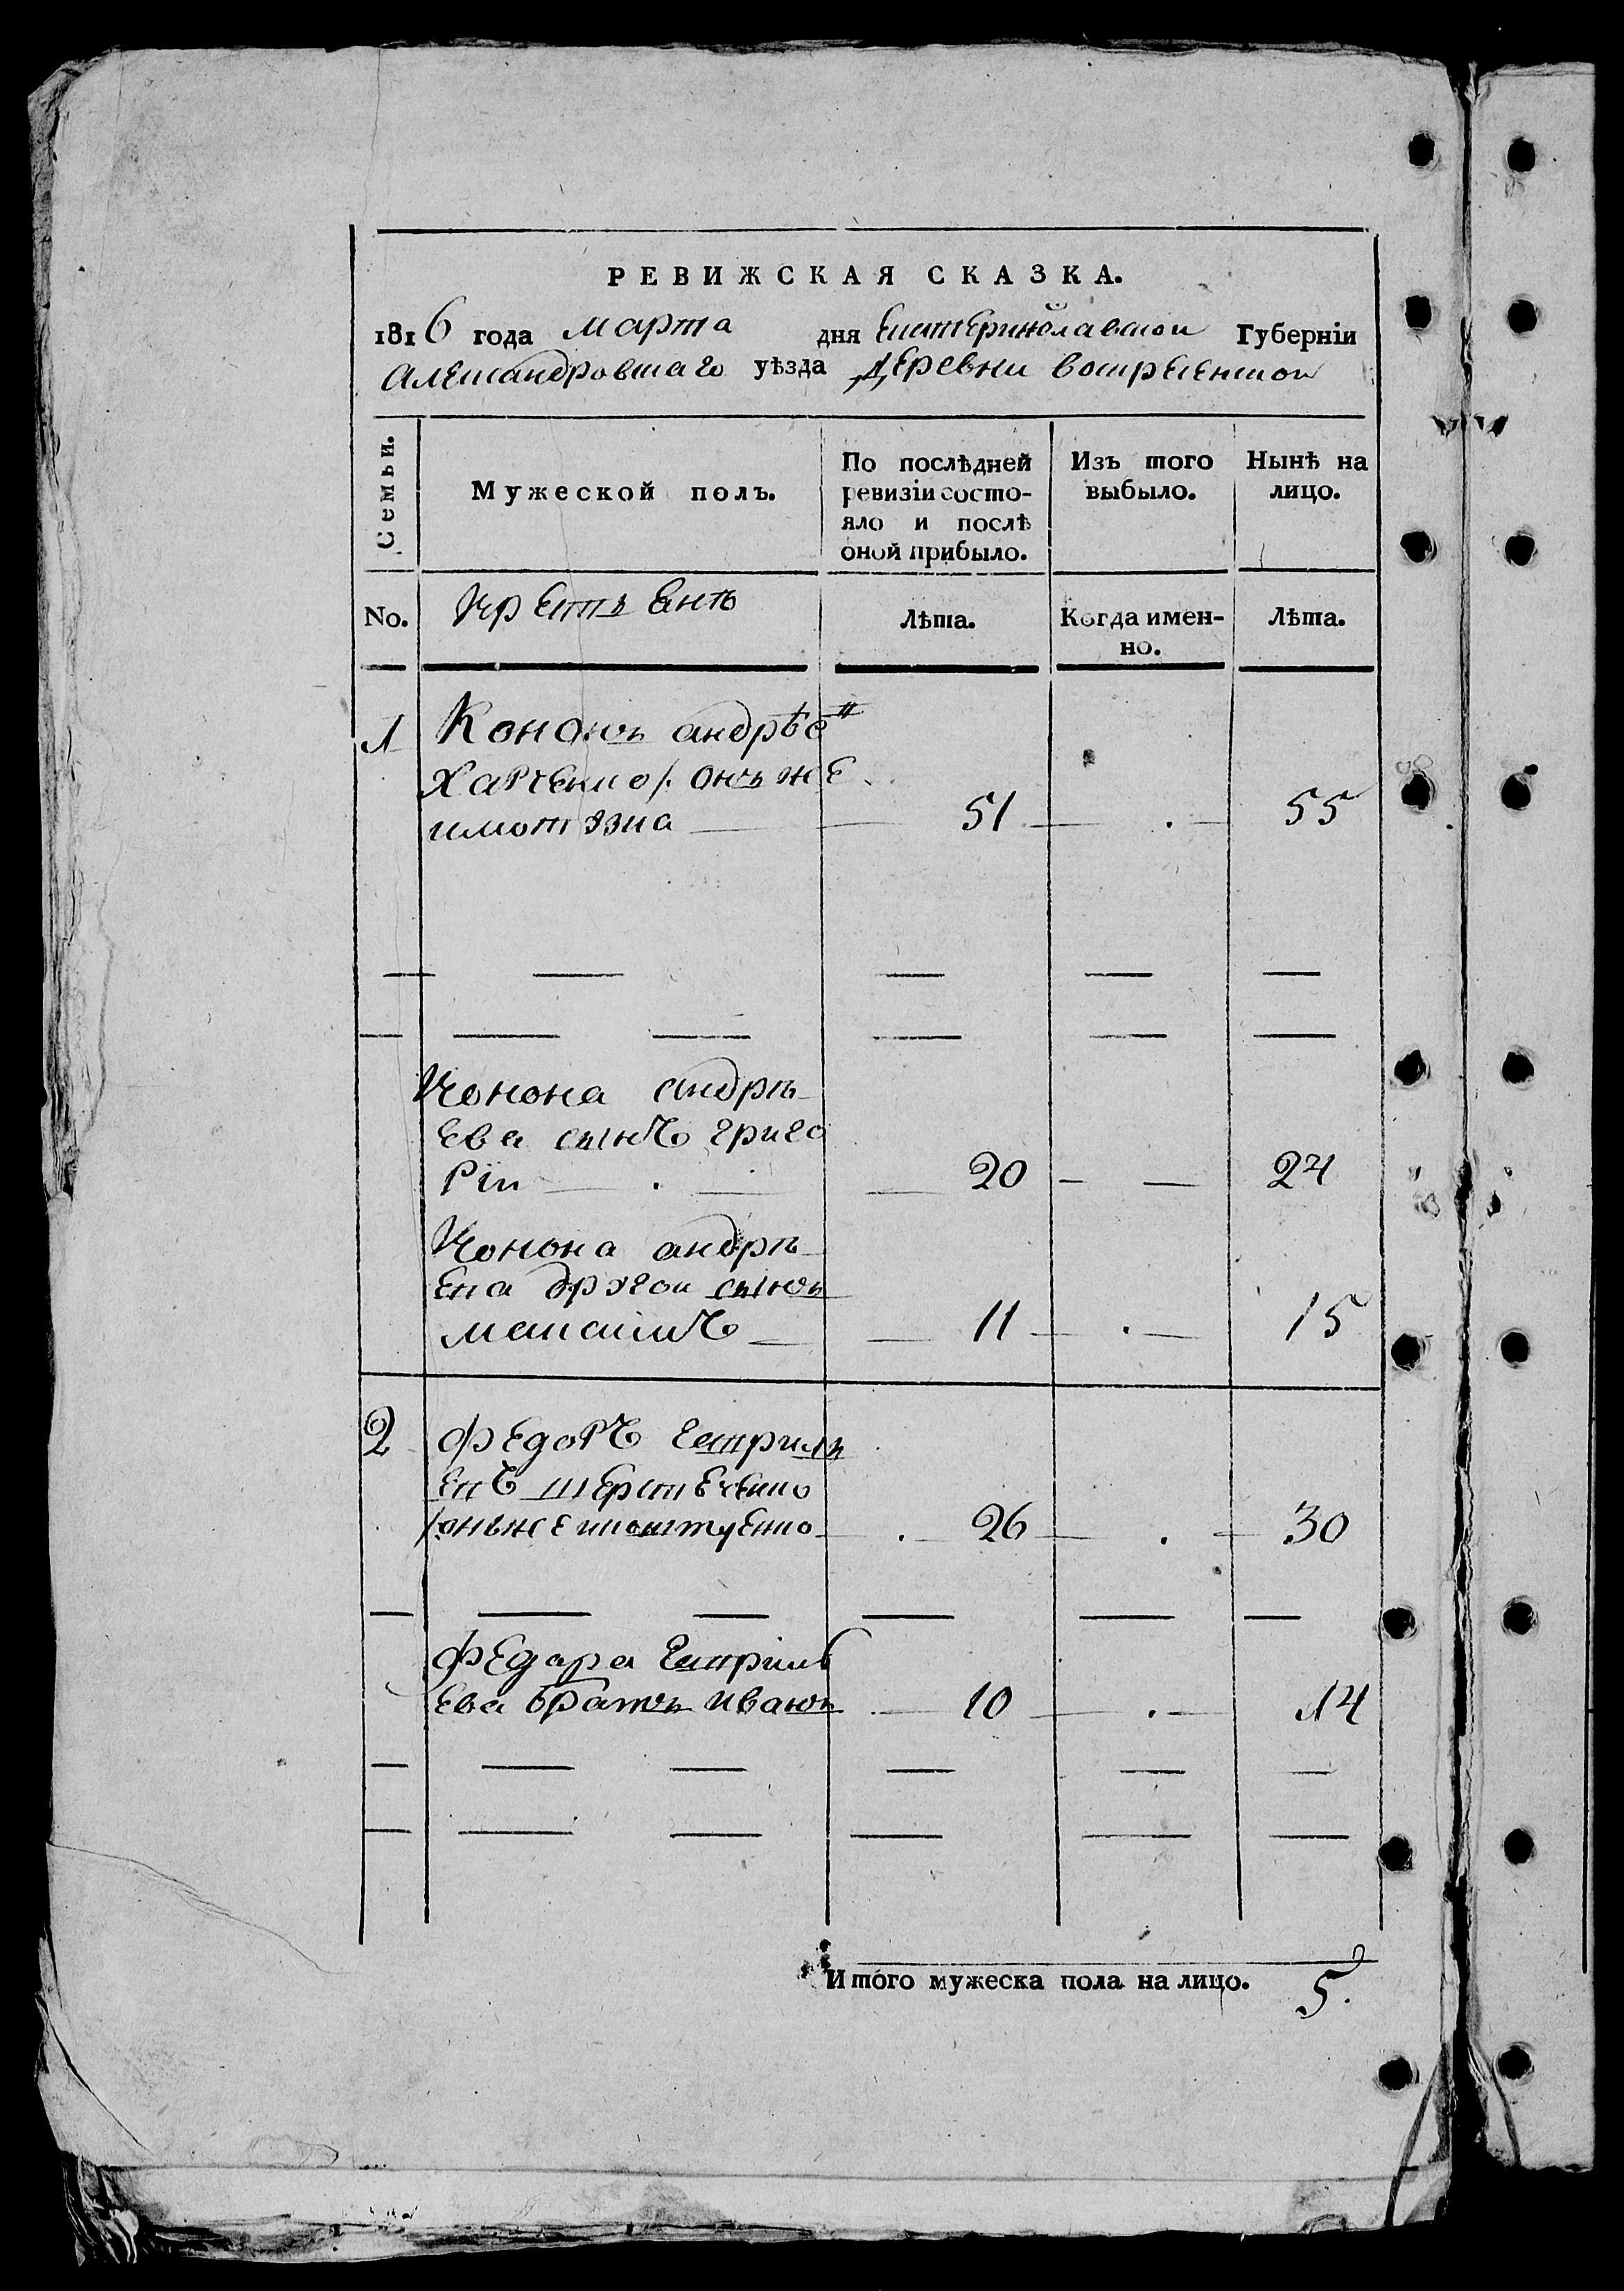 РЕВИЖСКАЯ СКАЗКА.
1816 года марта дня Екатеринославской Губерніи
Александровскаго уѣзда Деревни воскресенской
Семьи. Мужеской полъ. По послѣдней ревизіи состо-яло и послѣ оной прибыло. Изъ того выбыло. Нынѣ на лицо.
No. Крестьянъ Лѣта. Когда имен-но. Лѣта.
1 Кононъ андрѣе
Харченко /. онъ же
51 . 55
Конона андрѣ
ева сынъ григо
рiи 20 24
Конона андрѣ
ева другои сынъ
максимъ 11 . 15
2 Федоръ гаврилъ
евъ шерстюченко
/онъ же 26 . 30
Федара гаврилъ
ева братъ иванъ 10 . 14
Итого мужеска пола на лицо. 5.